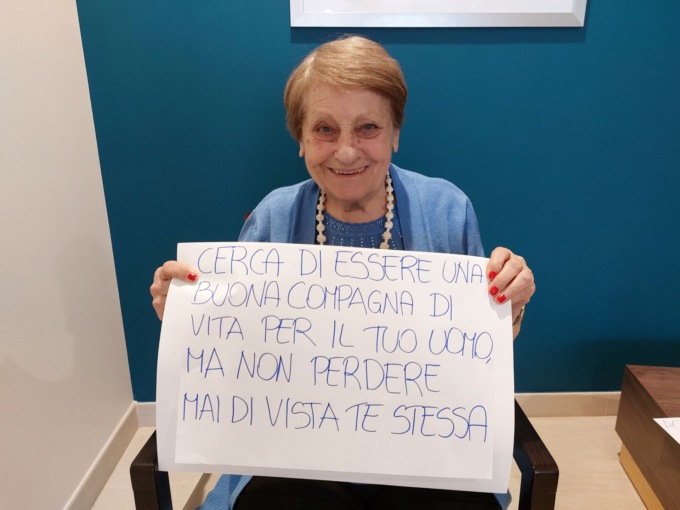 CERCA DI ESSERE UNA
BUONA COMPAGNA DI
VITA PER IL TUO UOMO,
MA NON PERDERE
MAI DI VISTA TE STESSA